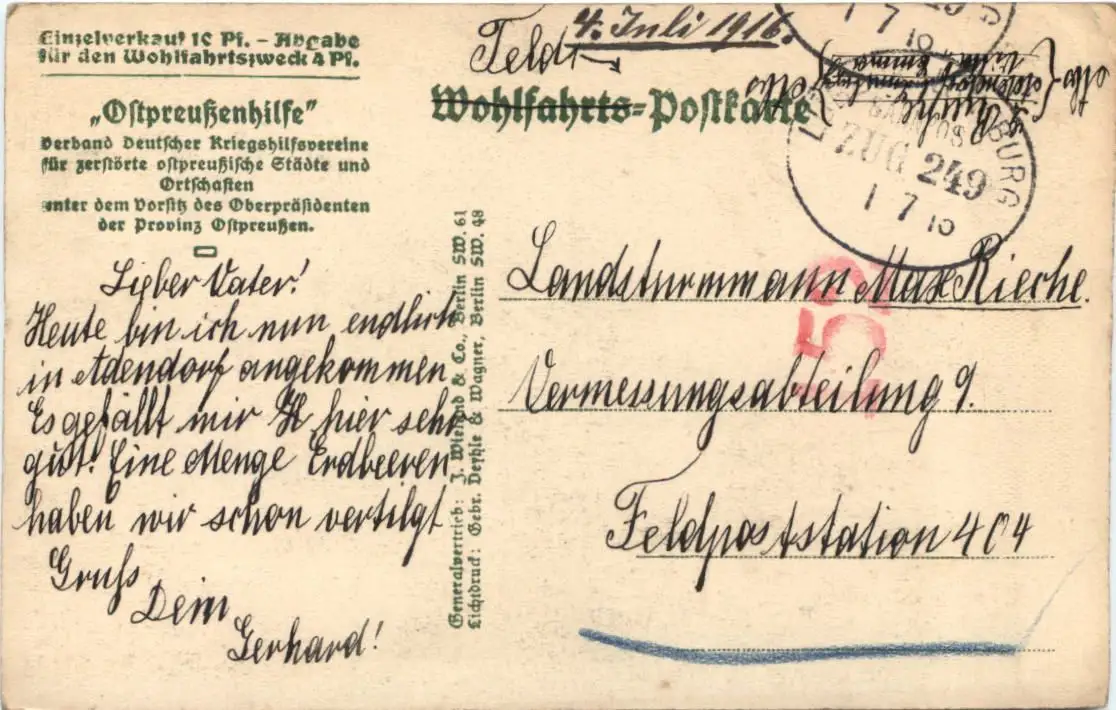 Einzelverkauf 10 Pf. – Abgabe
für den Wohlfahrtszweck 4 Pf.
„Ostpreußenhilfe"
Verband Deutscher Kriegshilfsvereine
für zerstörte ostpreußische Städte und
Ortschaften
unter dem Vorsitz des Oberpräsidenten
der Provinz Ostpreußen.
4. Juli 1916.
Feld
Wohlfahrts-Postkarte
1 7 16
BURG
ZUG 249
1 7 16
Lieber Vater!
Heute bin ich nun endlich
in Adendorf angekommen
Es gefällt mir hier sehr
gut! Eine Menge Erdbeeren
haben wir schon vertilgt
Gruß
Dein
Gerhard!
Generalvertrieb: J. Wiesend & Co., Berlin SW. 61
Lichtdruck: Gebr. Deyhle & Wagner, Berlin SW. 48
Landsturmmann Max Rieche.
Vermessungsabteilung 9.
Feldpoststation 404